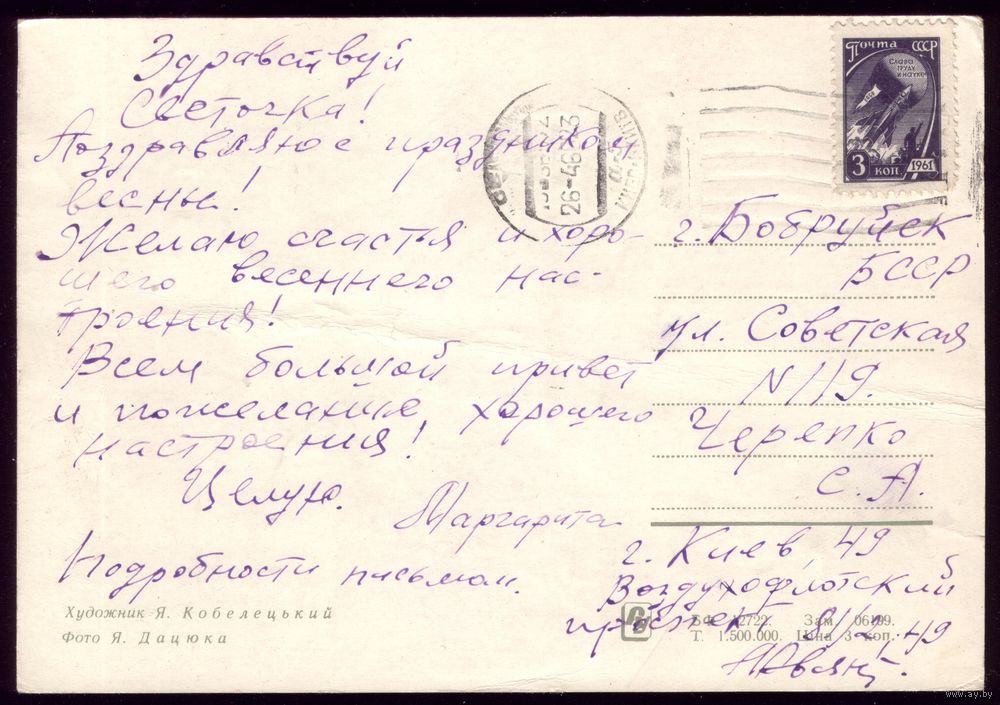 Здравствуй
Сесточка!
Поздравляю с праздником
весны!
Желаю счастья и хоро-
шего весеннего нас-
троения!
Всем большой привет
и пожелание хорошего
настроения!
Целую.
Маргарита
Подробности письмом.
Художник Я. Кобелецький
Фото Я. Дацюка
Почта СССР
Слава
труду
и науке
3 коп. 1961
г. Бобруйск
БССР
ул. Советская
N 119.
Черепко
С. А.
г. Киев, 49
Воздухофлотский
проспект
БФ 12722. Зам. 06199.
Т. 1.500.000. Ціна 3 коп.
www.ay.by